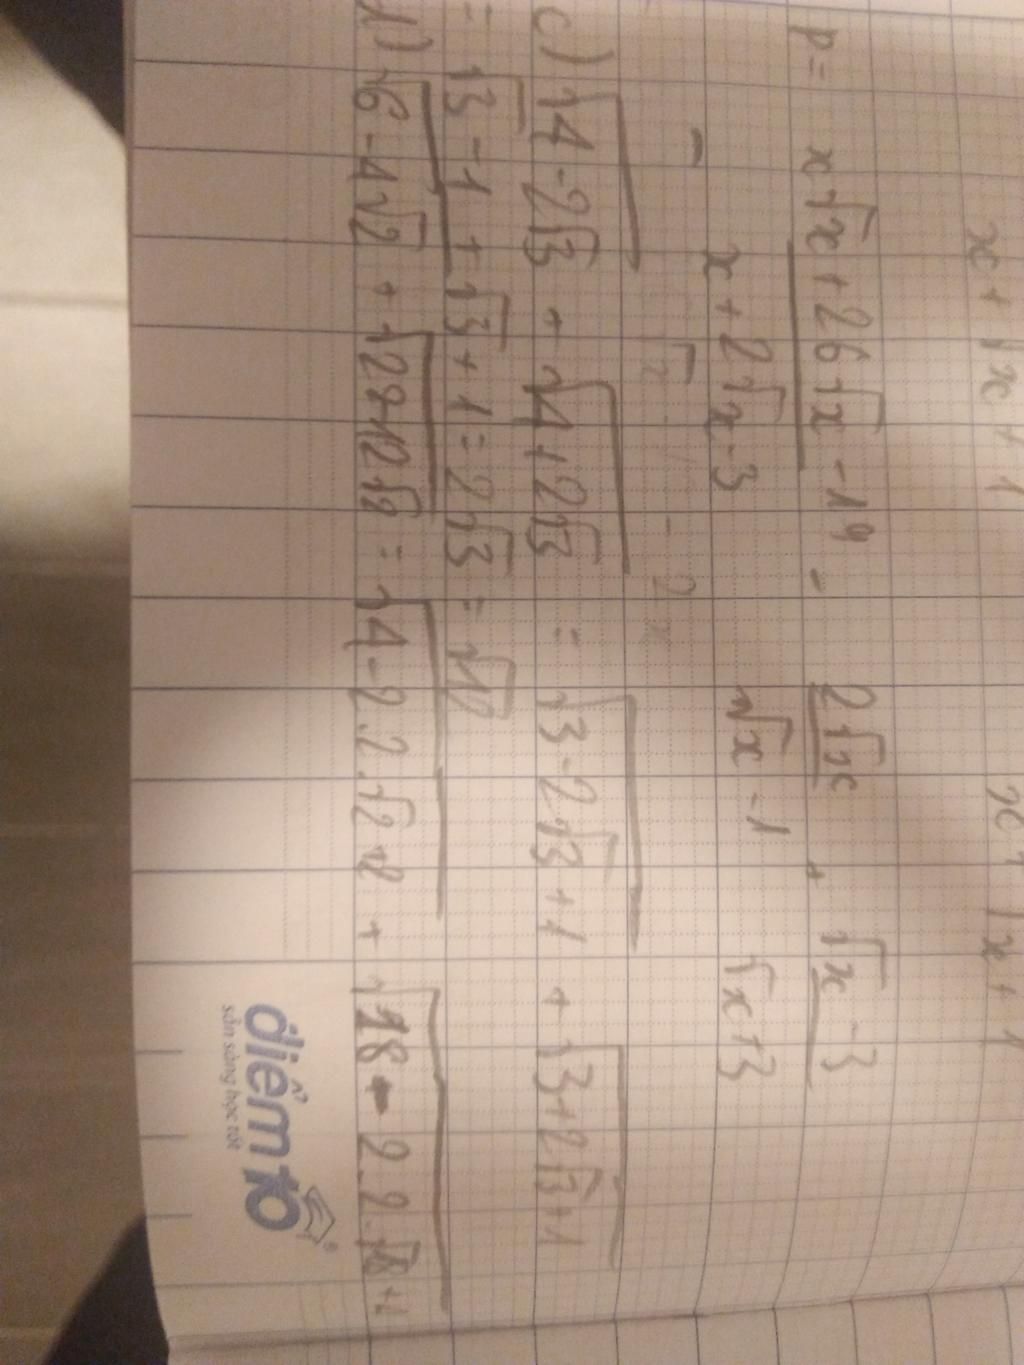 x + √x + 1    x + √x + 1
P = (x√x + 26√x - 19)/(x + 2√x - 3) - 2√x/(√x - 1) + (√x - 3)/(√x + 3)
c) √(4 - 2√3) + √(4 + 2√3) = √(3 - 2√3 + 1) + √(3 + 2√3 + 1)
= √3 - 1 + √3 + 1 = 2√3 = √12
d) √(6 - 4√2) + = √(4 - 2.2.√2 + √(18 - 2.2.
điểm 10
sẵn sàng học tốt